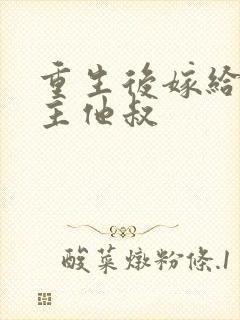 重生後嫁給
主他叔
酸菜燉粉條.1